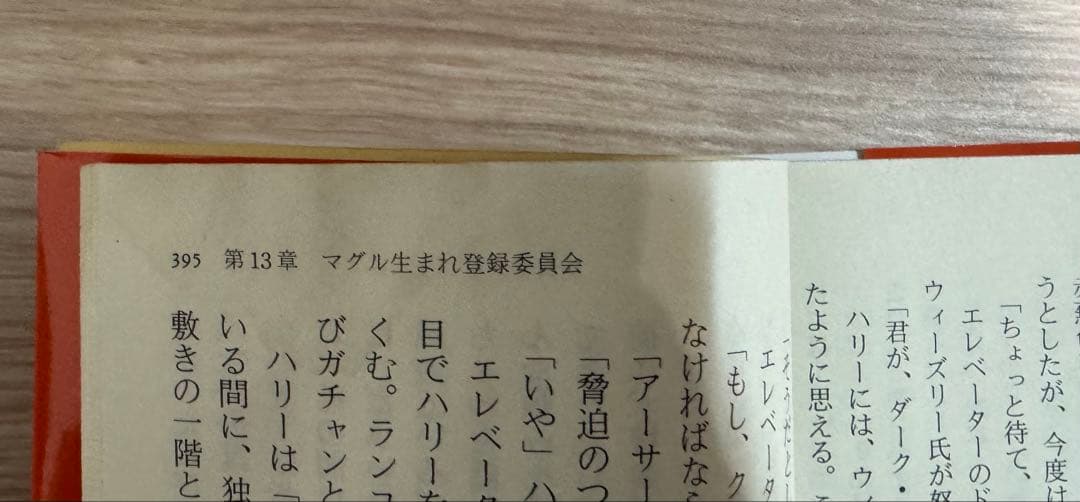 395 第13章 マグル生まれ登録委員会
うとしたが、今度は
「ちょっと待て、
エレベーターのド
ウィーズリー氏が怒
「君が、ダーク・
ハリーには、ウィ
たように思える。
エレベータ
「もし、ク
なければなら
「アーサー
「脅迫のつ
「いや」ハ
エレベータ
目でハリーを
くむ。ランコ
びガチャンと
ハリーは「
いる間に、独
敷きの一階と